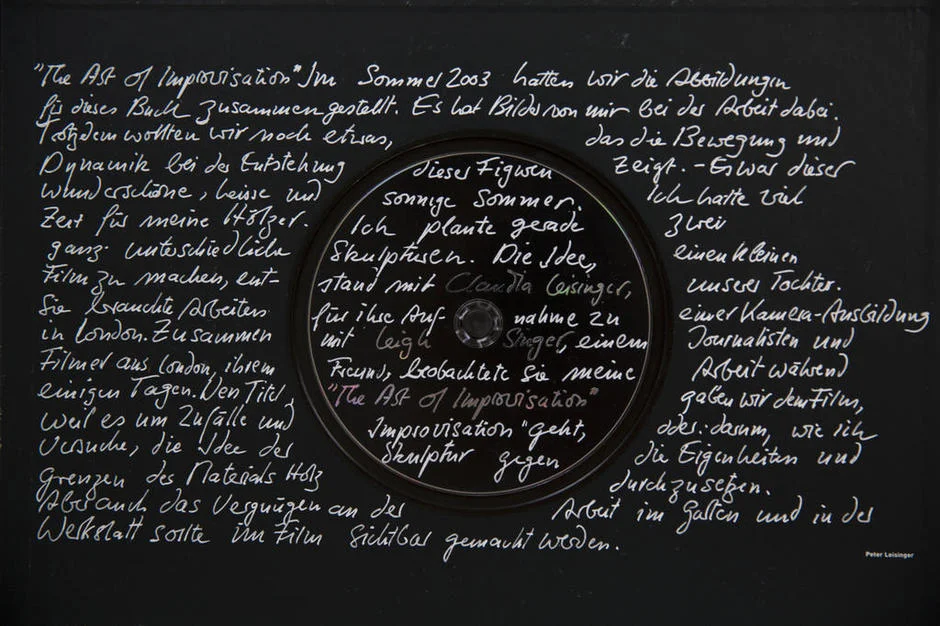 "The Art of Improvisation" Im Sommer 2003 hatten wir die Abbildungen
für dieses Buch zusammengestellt. Es hat Bilder von mir bei der Arbeit dabei.
Trotzdem wollten wir noch etwas, das die Bewegung und
Dynamik bei der Entstehung dieser Figuren zeigt. - Es war dieser
wunderschöne, heisse und sonnige Sommer. Ich hatte viel
Zeit für meine Hölzer. Ich plante gerade zwei
ganz unterschiedliche Skulpturen. Die Idee, einen kleinen
Film zu machen, ent- stand mit Claudia Leisinger, unserer Tochter.
Sie brauchte Arbeiten für ihre Auf- nahme zu einer Kamera-Ausbildung
in London. Zusammen mit Leigh Singer, einem Journalisten und
Filmer aus London, ihrem Freund, beobachtete Sie meine Arbeit während
einigen Tagen. Den Titel, "The Art of Improvisation" gaben wir dem Film,
weil es um Zufälle und Improvisation" geht, oder: darum, wie ich
Versuche, die Idee der Skulptur gegen die Eigenheiten und
Grenzen des Materials Holz durchzusetzen.
Aber auch das Vergnügen an der Arbeit im Garten und in der
Werkstatt sollte im Film sichtbar gemacht werden.
Peter Leisinger